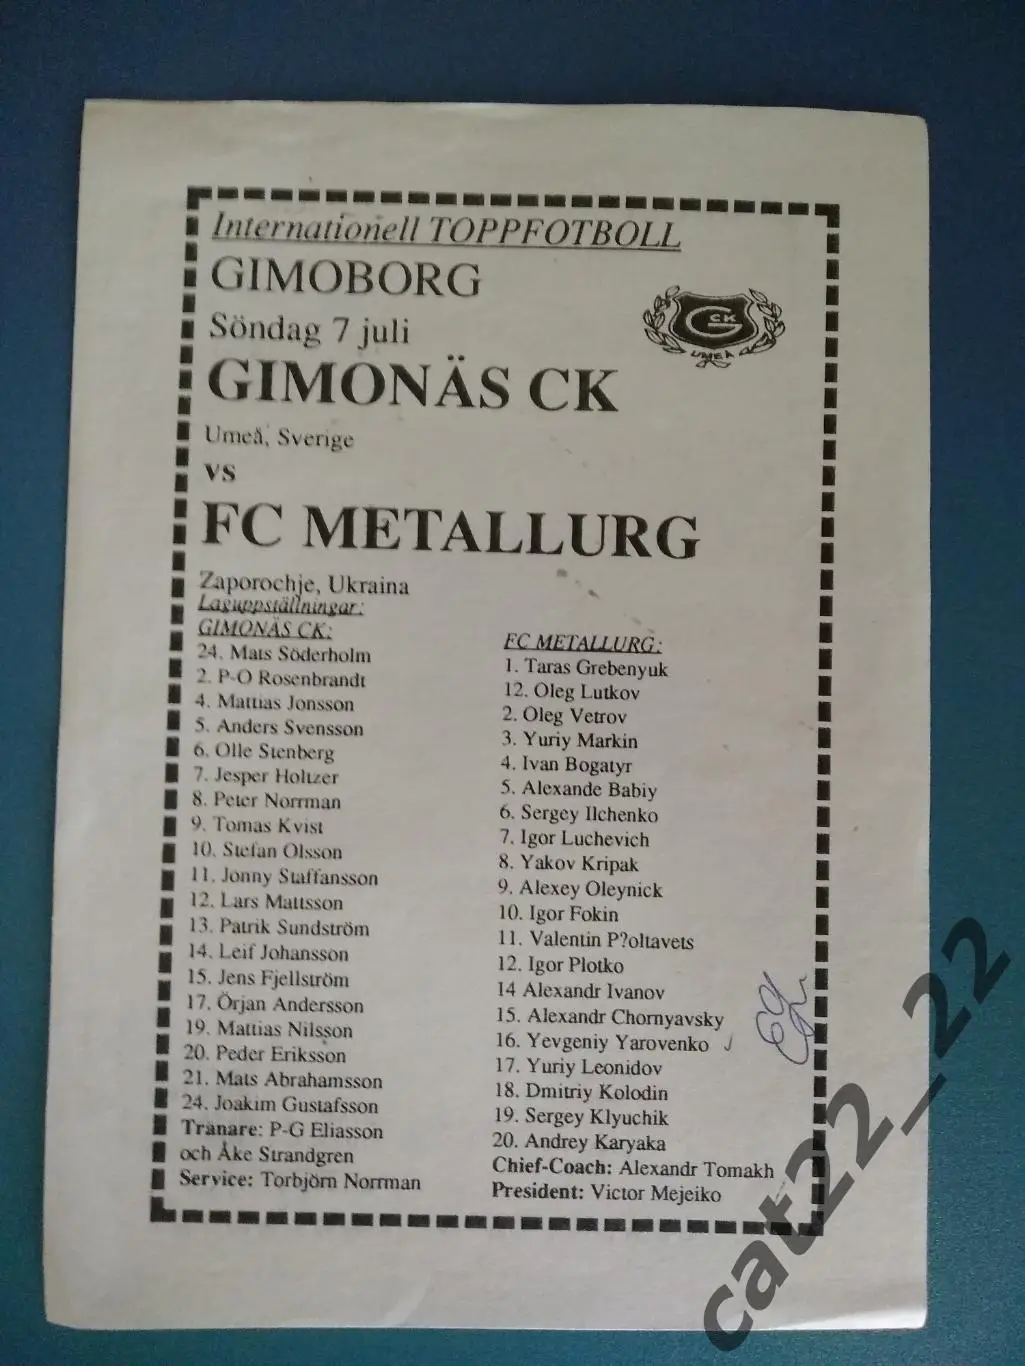 Internationell TOPPFOTBOLL
GIMOBORG
Söndag 7 juli
GIMONÄS CK
Umeå, Sverige
vs
FC METALLURG
Zaporochje, Ukraina
Laguppställningar:
GIMONÄS CK:
24. Mats Söderholm
2. P-O Rosenbrandt
4. Mattias Jonsson
5. Anders Svensson
6. Olle Stenberg
7. Jesper Holtzer
8. Peter Norrman
9. Tomas Kvist
10. Stefan Olsson
11. Jonny Staffansson
12. Lars Mattsson
13. Patrik Sundström
14. Leif Johansson
15. Jens Fjellström
17. Örjan Andersson
19. Mattias Nilsson
20. Peder Eriksson
21. Mats Abrahamsson
24. Joakim Gustafsson
Tränare: P-G Eliasson
och Åke Strandgren
Service: Torbjörn Norrman
FC METALLURG:
1. Taras Grebenyuk
12. Oleg Lutkov
2. Oleg Vetrov
3. Yuriy Markin
4. Ivan Bogatyr
5. Alexande Babiy
6. Sergey Ilchenko
7. Igor Luchevich
8. Yakov Kripak
9. Alexey Oleynick
10. Igor Fokin
11. Valentin P?oltavets
12. Igor Plotko
14 Alexandr Ivanov
15. Alexandr Chornyavsky
16. Yevgeniy Yarovenko
17. Yuriy Leonidov
18. Dmitriy Kolodin
19. Sergey Klyuchik
20. Andrey Karyaka
Chief-Coach: Alexandr Tomakh
President: Victor Mejeiko
G CK
UMEÅ
cat22_22